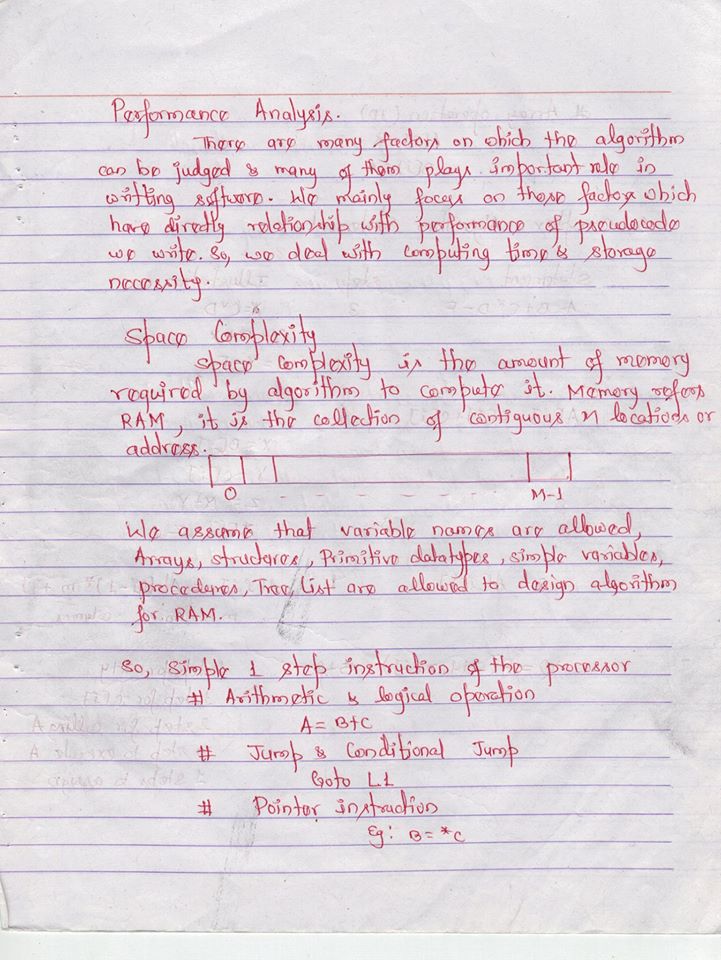 Performance Analysis.
There are many factors on which the algorithm
can be judged & many of them plays important role in
writting software. We mainly focus on those factors which
have directly relationship with performance of pseudocode
we write. So, we deal with computing time & storage
necessity.
Space Complexity
Space Complexity is the amount of memory
required by algorithm to compute it. Memory refers
RAM, it is the collection of contiguous M locations or
address.
0 - - - - - - - M-1
We assume that variable names are allowed,
Arrays, structures, Primitive datatypes, simple variables,
procedures, Tree, list are allowed to design algorithm
for RAM.
So, Simple 1 step instruction of the processor
# Arithmetic & logical operation
A = B+C
# Jump & Conditional Jump
Goto L1
# Pointer instruction
Eg: B = *C